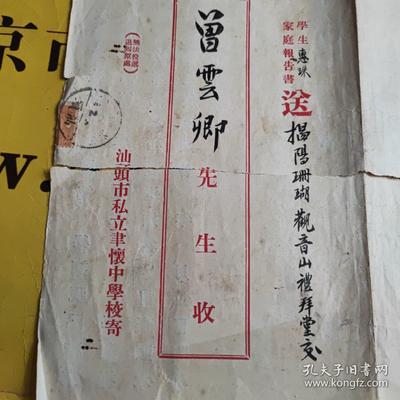 學生惠珠
家庭報告書
送揭陽珊瑚觀音山禮拜堂交
曾雲卿先生收
無法投遞
退回原處
汕頭市私立聿懷中學校寄
京市
w.
孔夫子旧书网
www.kongfz.com